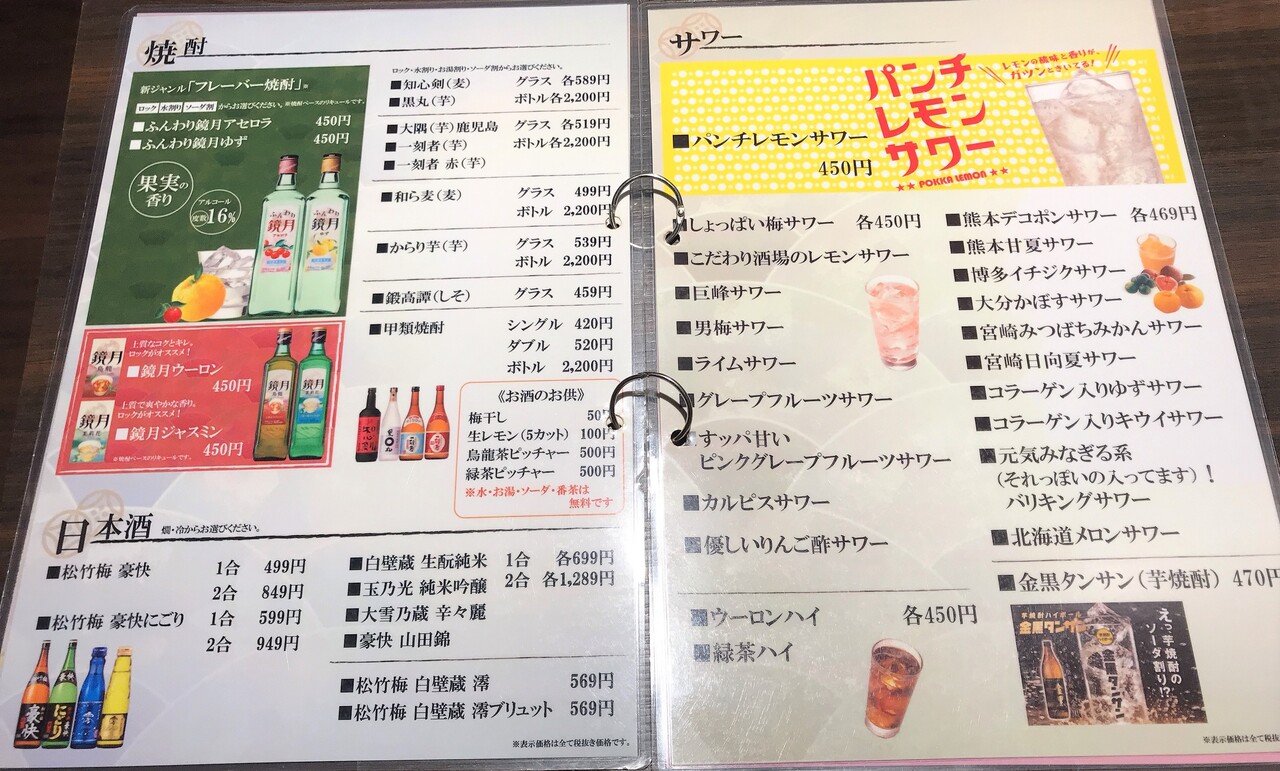 焼酎
新ジャンル「フレーバー焼酎」※
ロック 水割り ソーダ割 からお選びください。※焼酎ベースのリキュールです。
■ふんわり鏡月アセロラ 450円
■ふんわり鏡月ゆず 450円
果実の香り
アルコール度数16%
ふんわり鏡月 アセロラ
ふんわり鏡月 ゆず
上質なコクとキレ。
ロックがオススメ！
■鏡月ウーロン
450円
上質で爽やかな香り。
ロックがオススメ！
■鏡月ジャスミン
450円
※焼酎ベースのリキュールです。
鏡月
鏡月
鏡月
鏡月
ロック・水割り・お湯割り・ソーダ割からお選びください。
■知心剣（麦） グラス 各589円
■黒丸（芋） ボトル各2,200円
■大隅（芋）鹿児島 グラス 各519円
■一刻者（芋） ボトル各2,200円
■一刻者 赤（芋）
■和ら麦（麦） グラス 499円
ボトル 2,200円
■からり芋（芋） グラス 539円
ボトル 2,200円
■鍛高譚（しそ） グラス 459円
■甲類焼酎 シングル 420円
ダブル 520円
ボトル 2,200円
《お酒のお供》
梅干し 50円
生レモン（5カット） 100円
烏龍茶ピッチャー 500円
緑茶ピッチャー 500円
※水・お湯・ソーダ・番茶は
無料です
日本酒 燗・冷からお選びください。
■松竹梅 豪快 1合 499円
2合 849円
■松竹梅 豪快にごり 1合 599円
2合 949円
豪快
にごり
澪
■白壁蔵 生酛純米 1合 各699円
■玉乃光 純米吟醸 2合 各1,289円
■大雪乃蔵 辛々麗
■豪快 山田錦
■松竹梅 白壁蔵 澪 569円
■松竹梅 白壁蔵 澪ブリュット 569円
※表示価格は全て税抜き価格です。
サワー
■パンチレモンサワー
450円
パンチ
レモン
サワー
★★ POKKA LEMON ★★
レモンの酸味と香りが、
ガツンときいてる！
■しょっぱい梅サワー 各450円
■こだわり酒場のレモンサワー
■巨峰サワー
■男梅サワー
■ライムサワー
■グレープフルーツサワー
■すッパ甘い
ピンクグレープフルーツサワー
■カルピスサワー
■優しいりんご酢サワー
■ウーロンハイ 各450円
■緑茶ハイ
■熊本デコポンサワー 各469円
■熊本甘夏サワー
■博多イチジクサワー
■大分かぼすサワー
■宮崎みつばちみかんサワー
■宮崎日向夏サワー
■コラーゲン入りゆずサワー
■コラーゲン入りキウイサワー
■元気みなぎる系
（それっぽいの入ってます）！
バリキングサワー
■北海道メロンサワー
■金黒タンサン（芋焼酎） 470円
芋焼酎ハイボール
金黒タンサン
金黒タンサン
えっ芋焼酎の
ソーダ割り!?
※表示価格は全て税抜